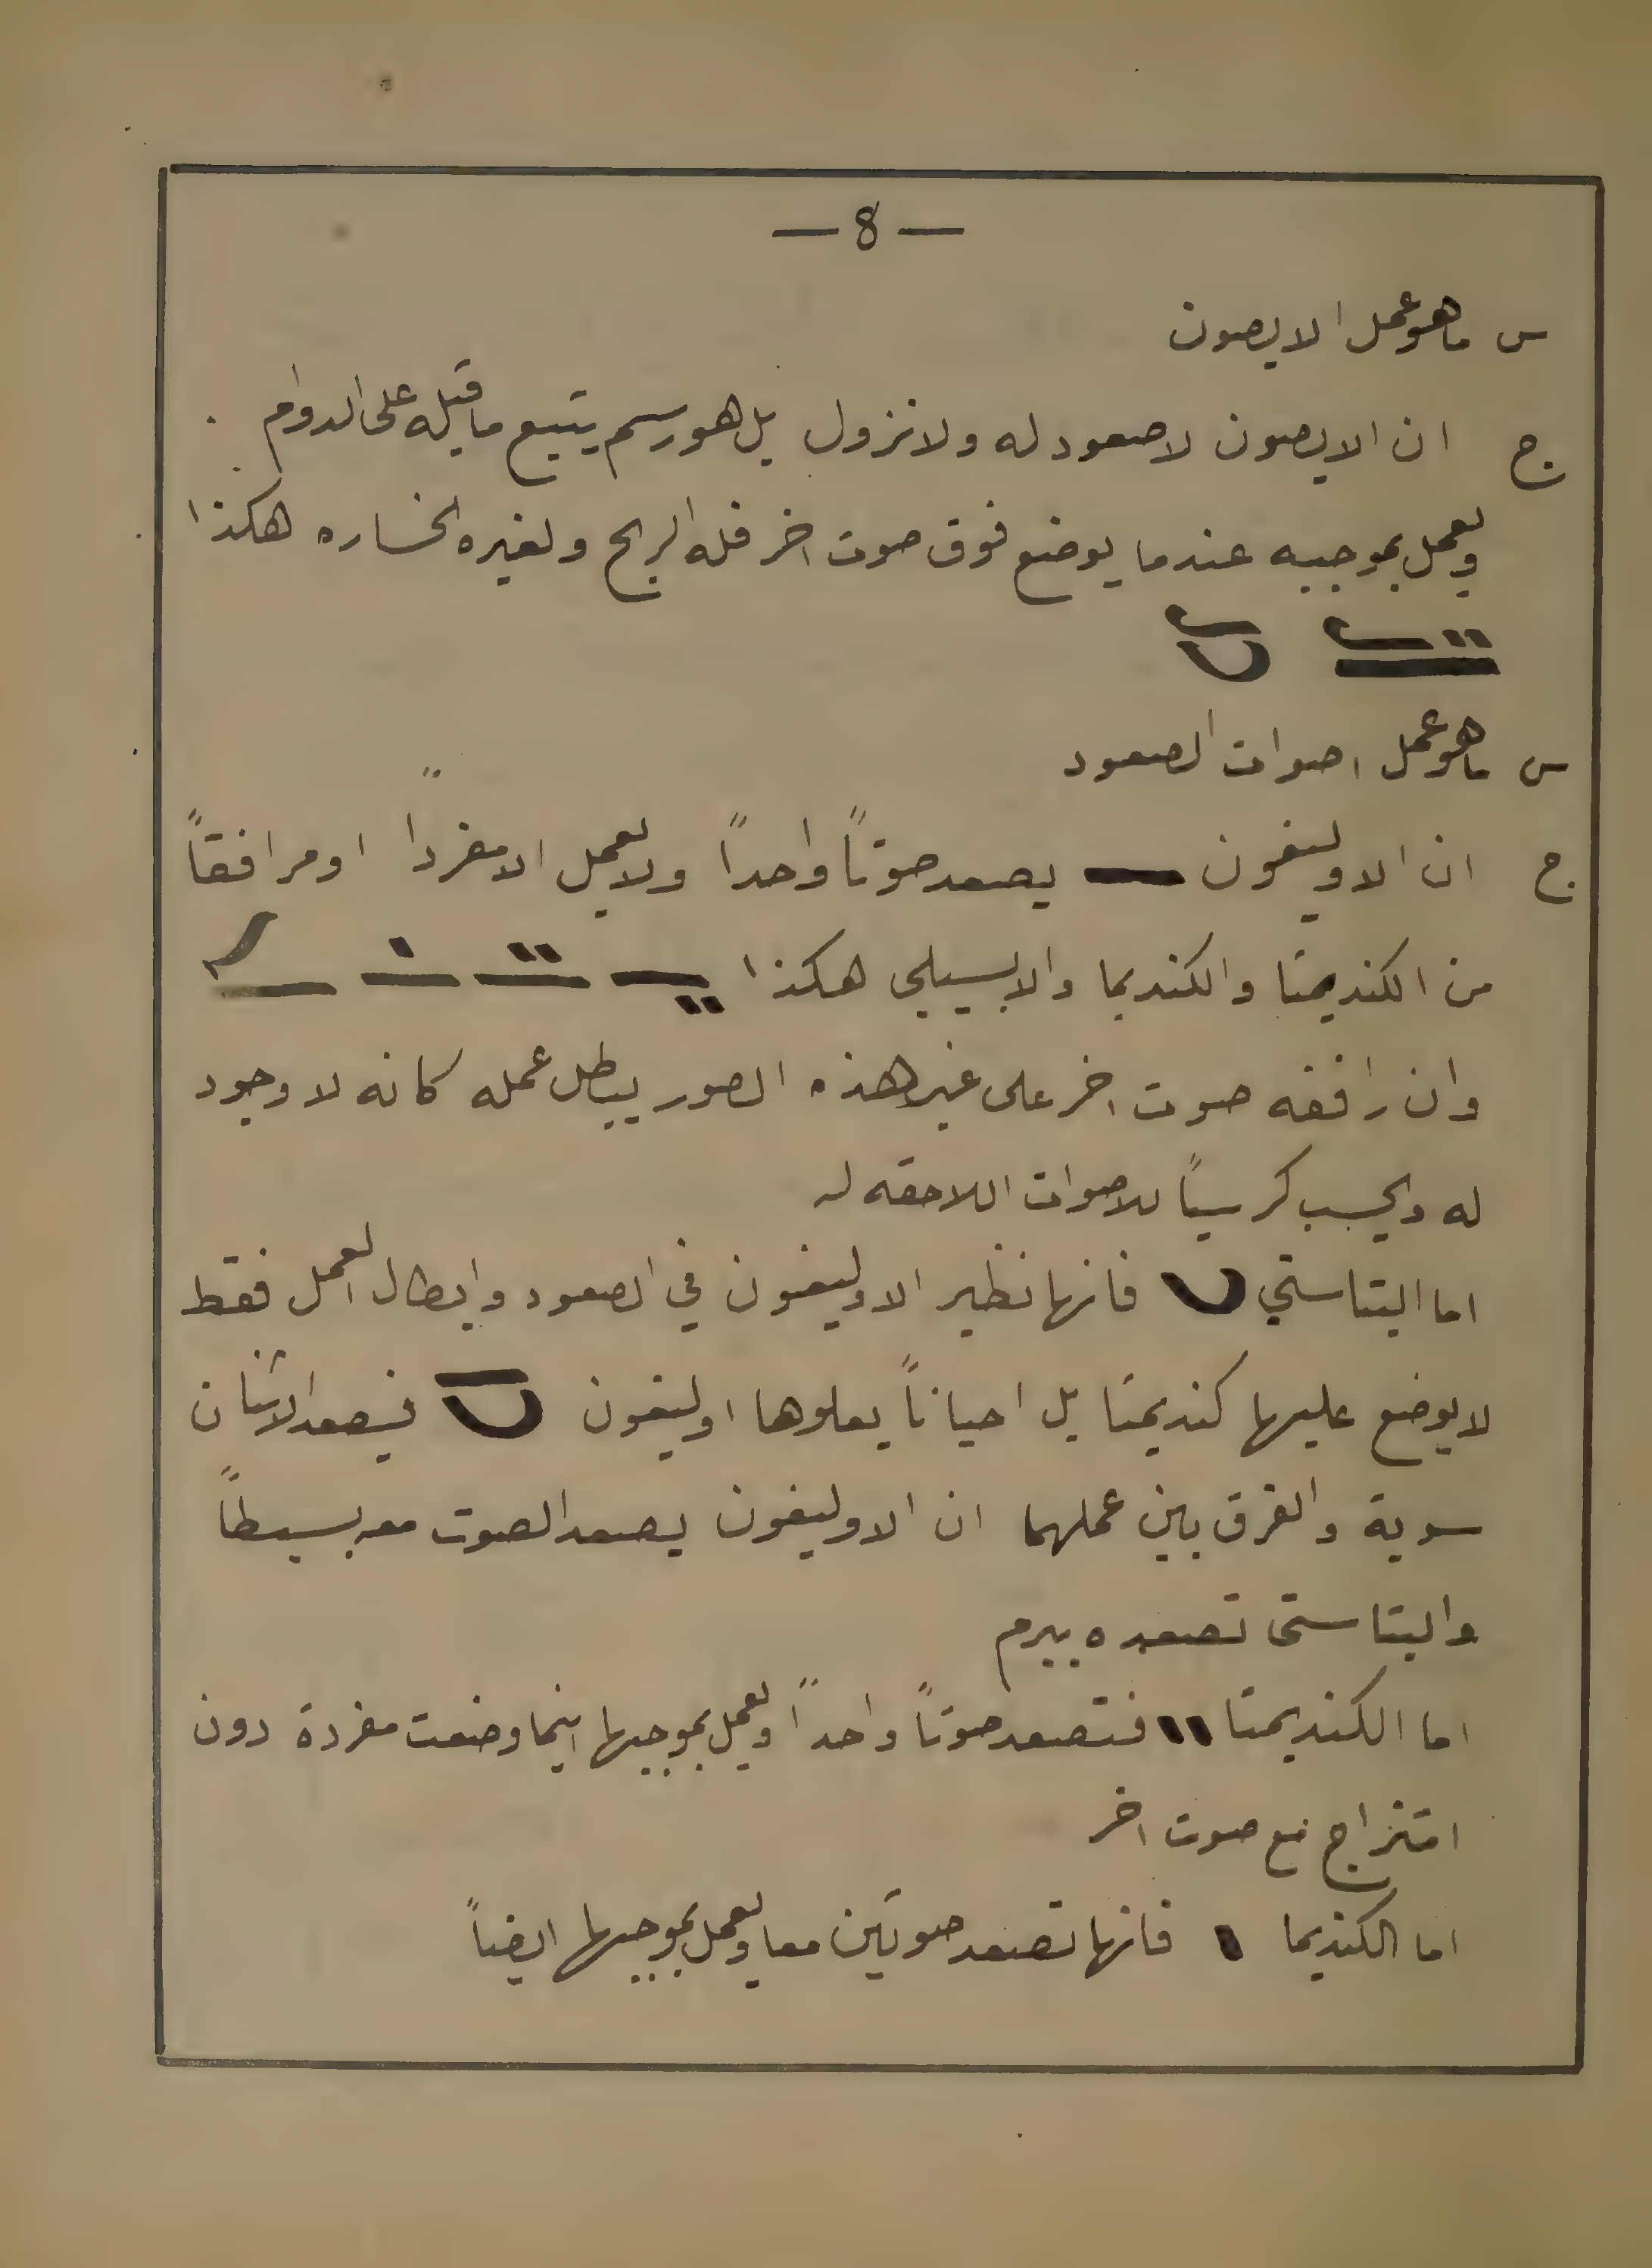 — 8 —
س ما هو عمل الايصون
ج ان الايصون لا صعود له ولا نزول بل هو رسم يتبع ما قبله على الدوام
ويعمل بموجبه عندما يوضع فوق صوت اخر فله الربح ولغيره الخساره هكذا
س ما هو عمل اصوات الصعود
ج ان الاوليغون يصعد صوتاً واحداً ولا يعمل الا مفرداً او مرافقاً
من الكنديمتا والكنديما والابسيلي هكذا
وان رافقه صوت اخر على غير هذه الصور يبطل عمله كانه لا وجود
له ويحسب كرسياً للاصوات اللاحقه له
اما البتاستي فانها نظير الاوليغون في الصعود وابطال العمل فقط
لا يوضع عليها كنديمتا بل احياناً يعلوها اوليغون فيصعد الاثنان
سوية والفرق بين عملهما ان الاوليغون يصعد الصوت معه بسيطاً
والبتاستى تصعده ببرم
اما الكنديمتا فتصعد صوتاً واحداً ويعمل بموجبها اينما وضعت مفردة دون
امتزاج مع صوت اخر
اما الكنديما فانها تصعد صوتين معا ويعمل بموجبها ايضاً